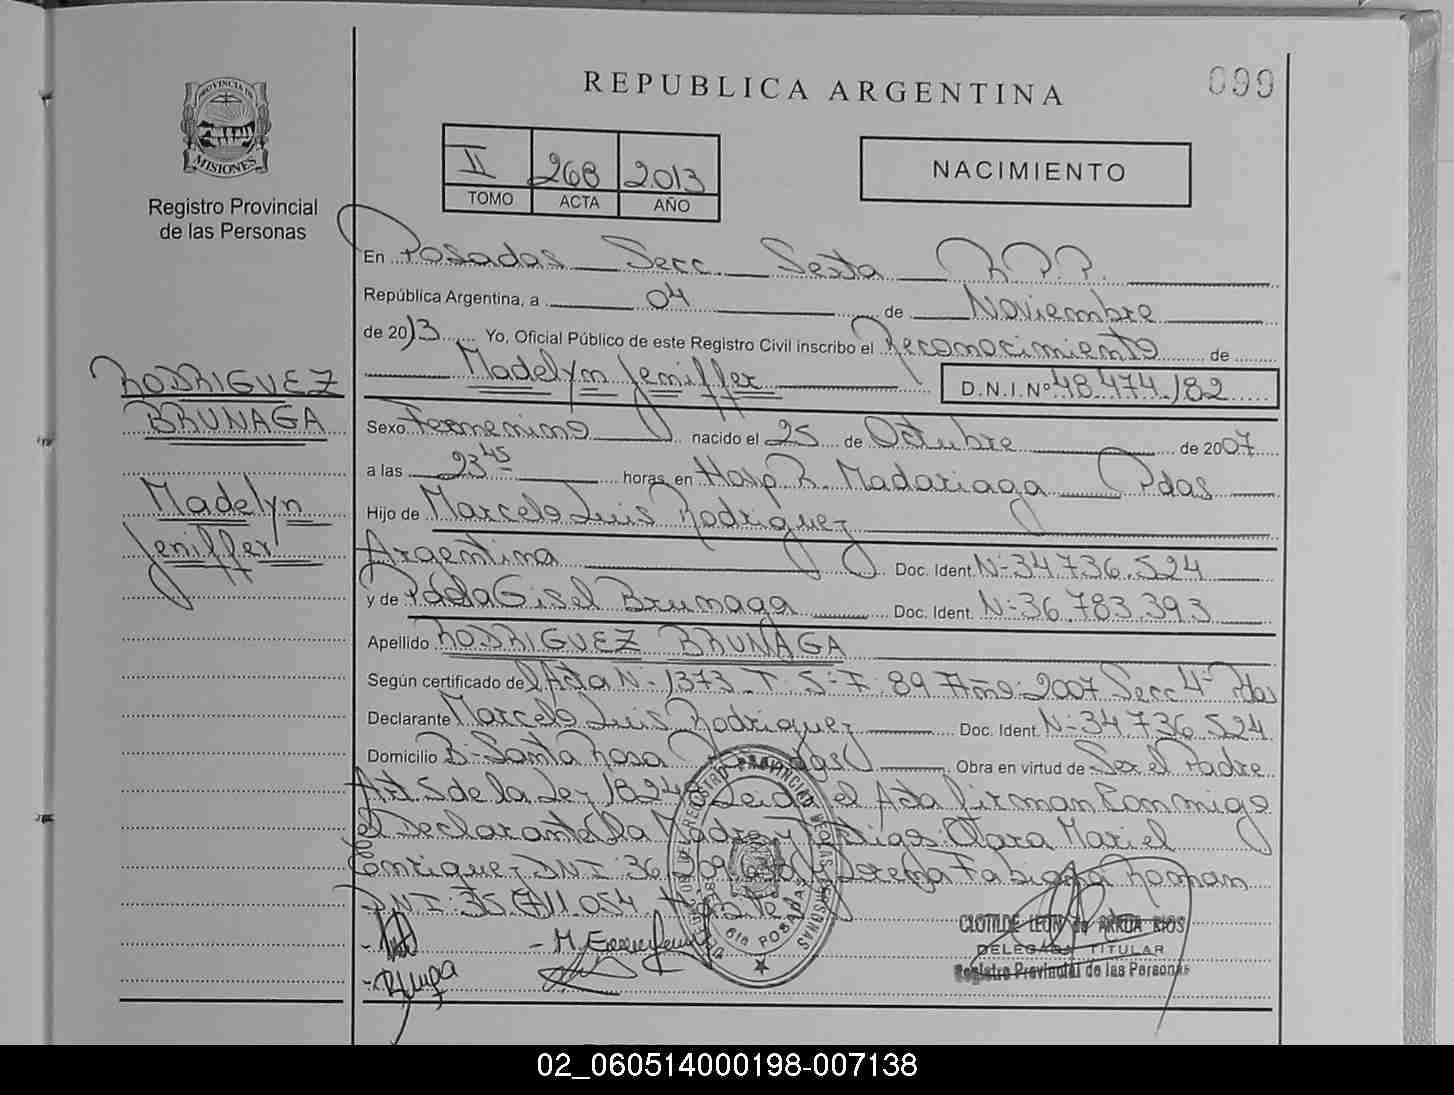 REPUBLICA ARGENTINA
099
PROVINCIA DE
MISIONES
Registro Provincial
de las Personas
II 268 2013
TOMO ACTA AÑO
NACIMIENTO
En Posadas Secc. Sexta R.P.P.
República Argentina, a 04 de Noviembre
de 2013 Yo, Oficial Público de este Registro Civil inscribo el Reconocimiento de
Madelyn Jeniffer D.N.I.Nº 48.474.182
RODRIGUEZ
BRUNAGA
Madelyn
Jeniffer
Sexo Femenino nacido el 25 de Octubre de 2007
a las 23 45 horas en Hosp R. Madariaga Pdas
Hijo de Marcelo Luis Rodriguez
Argentina Doc. Ident. N- 34.736.524
y de Paola Gisel Brunaga Doc. Ident. N- 36.783.393
Apellido RODRIGUEZ BRUNAGA
Según certificado del Acta N- 1373 T. 5- F: 89 Año: 2007 Secc 4- Pdas
Declarante Marcelo Luis Rodriguez Doc. Ident. N- 34.736.524
Domicilio B. Santa Rosa Obra en virtud de Ser el Padre
Art. 5 de la Ley 18248 Leida el Acta firman Conmigo
el Declarante la Madre y Clara Mariel
Enrique DNI: 36 Fabiana
DNI: 35.711.054
CLOTILDE LEON de ARRUA RIOS
DELEGADA TITULAR
Registro Provincial de las Personas
02_060514000198-007138